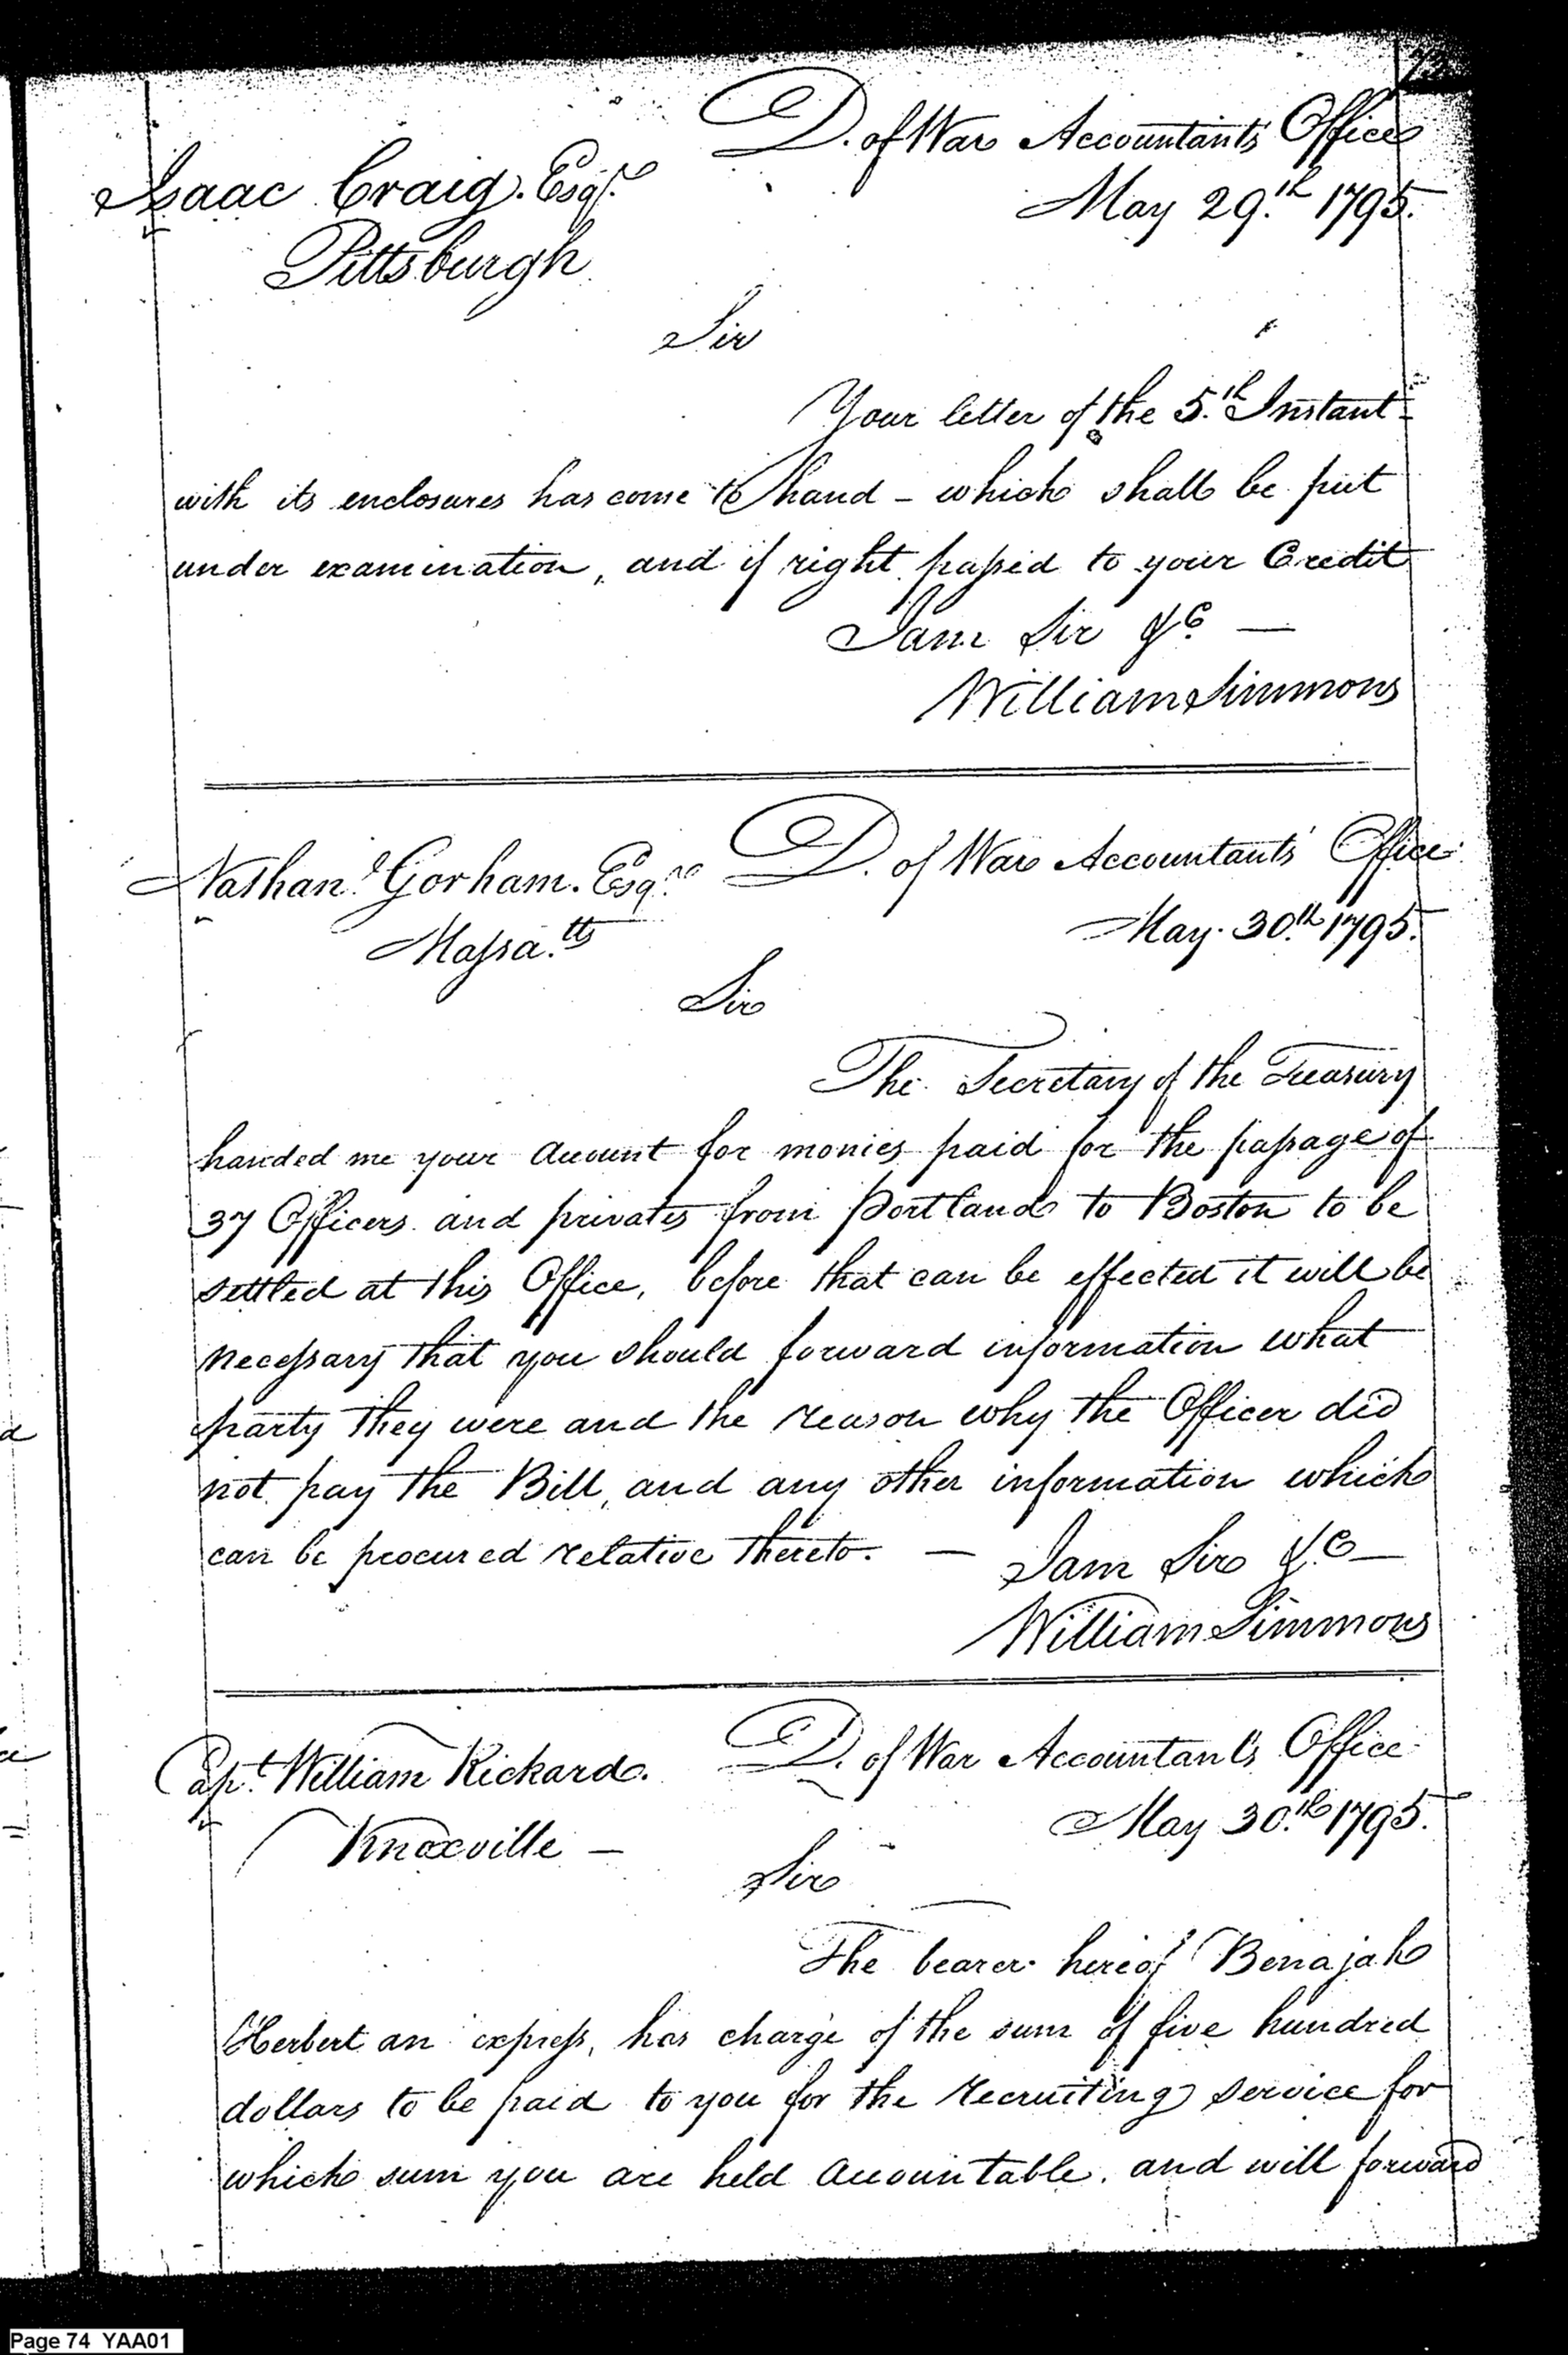 D. of War Accountants Office
Isaac Craig. Esqr.
May 29.th 1795.
Pittsburgh
Sir
Your letter of the 5.th Instant
with its enclosures has come to hand - which shall be put
under examination, and if right passed to your Credit
I am Sir &c —
William Simmons
Nathanl. Gorham. Esqre
D. of War Accountants' Office
Massa.tts
May. 30.th 1795.
Sir
The Secretary of the Treasury
handed me your Account for monies paid for the passage of
37 Officers and privates from Portland to Boston to be
settled at this Office, before that can be effected it will be
necessary that you should forward information what
party they were and the reason why the Officer did
not pay the Bill, and any other information which
can be procured relative thereto. — I am Sir &c —
William Simmons
Capt. William Rickard.
D. of War Accountants Office
May 30.th 1795.
Knoxville —
Sir
The bearer hereof Benajah
Herbert an express, has charge of the sum of five hundred
dollars to be paid to you for the recruiting service for
which sum you are held Accountable. and will forward
Page 74 YAA01